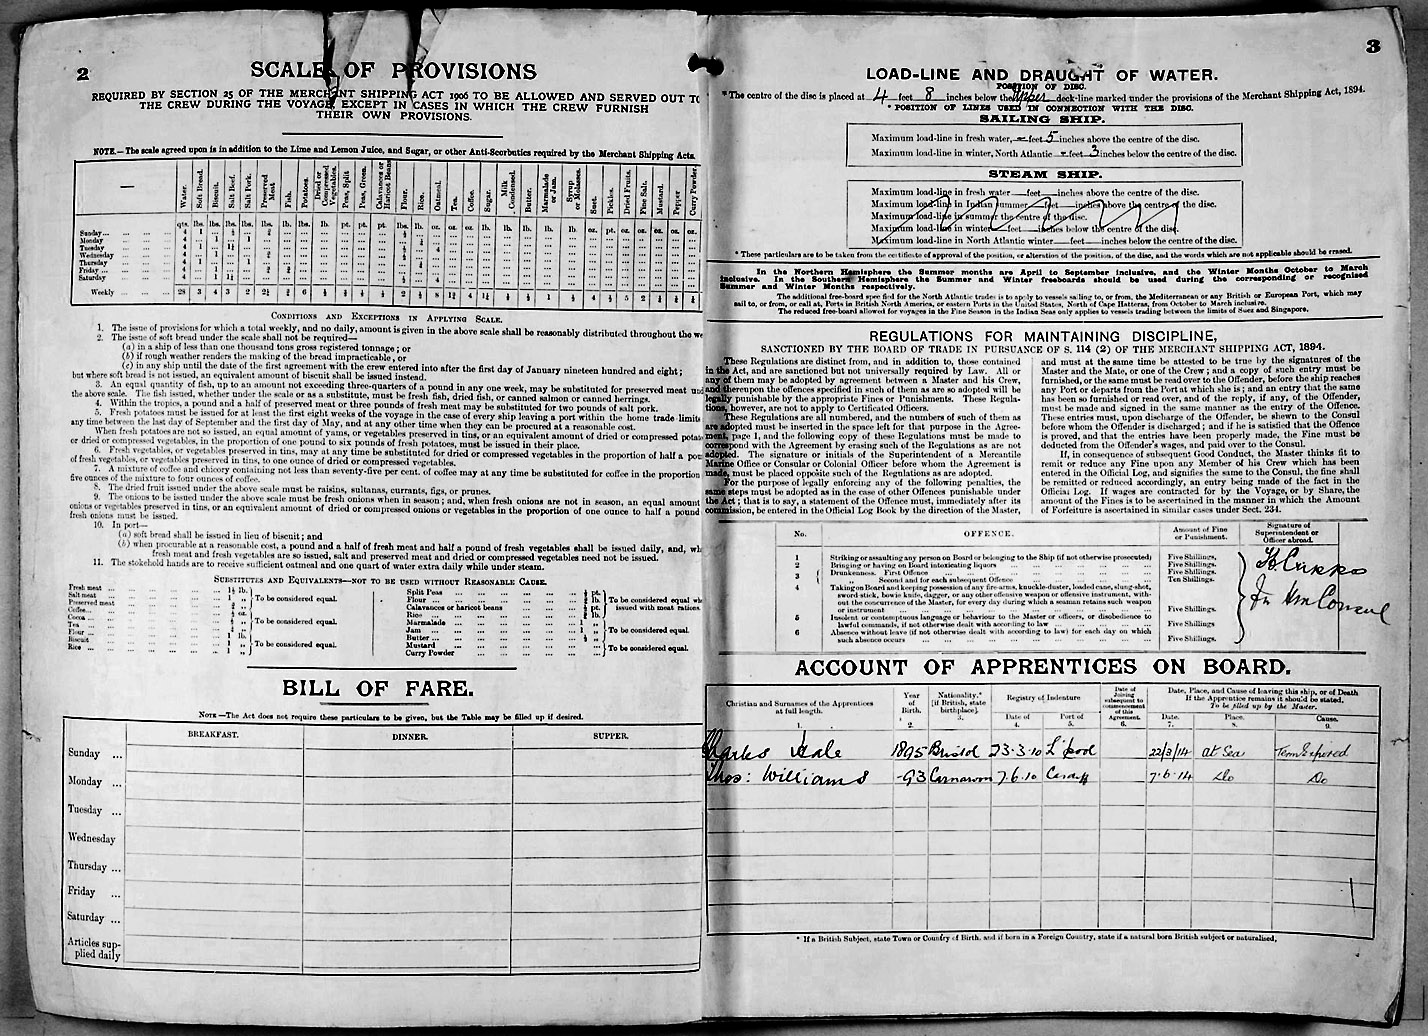 2
SCALE OF PROVISIONS
REQUIRED BY SECTION 25 OF THE MERCHANT SHIPPING ACT 1906 TO BE ALLOWED AND SERVED OUT TO
THE CREW DURING THE VOYAGE, EXCEPT IN CASES IN WHICH THE CREW FURNISH
THEIR OWN PROVISIONS.
NOTE.—The scale agreed upon is in addition to the Lime and Lemon Juice, and Sugar, or other Anti-Scorbutics required by the Merchant Shipping Acts.
Water. Soft Bread. Biscuit. Salt Beef. Salt Pork. Preserved Meat Fish. Potatoes. Dried or Compressed Vegetables. Peas, Split Peas, Green. Calavances or Haricot Beans Flour. Rice. Oatmeal. Tea. Coffee. Sugar. Milk Condensed. Butter. Marmalade or Jam. Syrup or Molasses. Suet. Pickles. Dried Fruits. Fine Salt. Mustard. Pepper Curry Powder.
qts. lbs. lbs. lbs. lbs. lbs. lbs. lbs. lb. pt. pt. pt. lbs. lb. oz. oz. oz. oz. lb. lb. lb. lb. oz. pt. oz. oz. oz. oz. oz.
Sunday
Monday
Tuesday
Wednesday
Thursday
Friday
Saturday
Weekly
CONDITIONS AND EXCEPTIONS IN APPLYING SCALE.
1. The issue of provisions for which a total weekly, and no daily, amount is given in the above scale shall be reasonably distributed throughout the we
2. The issue of soft bread under the scale shall not be required—
(a) in a ship of less than one thousand tons gross registered tonnage; or
(b) if rough weather renders the making of the bread impracticable, or
(c) in any ship until the date of the first agreement with the crew entered into after the first day of January nineteen hundred and eight;
but where soft bread is not issued, an equivalent amount of biscuit shall be issued instead.
3. An equal quantity of fish, up to an amount not exceeding three-quarters of a pound in any one week, may be substituted for preserved meat und
the above scale. The fish issued, whether under the scale or as a substitute, must be fresh fish, dried fish, or canned salmon or canned herrings.
4. Within the tropics, a pound and a half of preserved meat or three pounds of fresh meat may be substituted for two pounds of salt pork.
5. Fresh potatoes must be issued for at least the first eight weeks of the voyage in the case of every ship leaving a port within the home trade limits
any time between the last day of September and the first day of May, and at any other time when they can be procured at a reasonable cost.
When fresh potatoes are not so issued, an equal amount of yams, or vegetables preserved in tins, or an equivalent amount of dried or compressed potato
or dried or compressed vegetables, in the proportion of one pound to six pounds of fresh potatoes, must be issued in their place.
6. Fresh vegetables, or vegetables preserved in tins, may at any time be substituted for dried or compressed vegetables in the proportion of half a pou
of fresh vegetables, or vegetables preserved in tins, to one ounce of dried or compressed vegetables.
7. A mixture of coffee and chicory containing not less than seventy-five per cent. of coffee may at any time be substituted for coffee in the proportion
five ounces of the mixture to four ounces of coffee.
8. The dried fruit issued under the above scale must be raisins, sultanas, currants, figs, or prunes.
9. The onions to be issued under the above scale must be fresh onions when in season; and, when fresh onions are not in season, an equal amount
onions or vegetables preserved in tins, or an equivalent amount of dried or compressed onions or vegetables in the proportion of one ounce to half a pound
fresh onions must be issued.
10. In port—
(a) soft bread shall be issued in lieu of biscuit; and
(b) when procurable at a reasonable cost, a pound and a half of fresh meat and half a pound of fresh vegetables shall be issued daily, and, wh
fresh meat and fresh vegetables are so issued, salt and preserved meat and dried or compressed vegetables need not be issued.
11. The stokehold hands are to receive sufficient oatmeal and one quart of water extra daily while under steam.
SUBSTITUTES AND EQUIVALENTS—NOT TO BE USED WITHOUT REASONABLE CAUSE.
Fresh meat 1½ lb.
Salt meat 1 „
Preserved meat
To be considered equal.
Coffee
Cocoa
Tea
To be considered equal.
Flour 1 lb.
Biscuit 1 „
Rice 1 „
To be considered equal.
Split Peas
Flour
Calavances or haricot beans
Rice
To be considered equal wh
issued with meat rations.
Marmalade
Jam
Butter
To be considered equal.
Mustard
Curry Powder
To be considered equal.
BILL OF FARE.
NOTE—The Act does not require these particulars to be given, but the Table may be filled up if desired.
BREAKFAST. DINNER. SUPPER.
Sunday ...
Monday ...
Tuesday ...
Wednesday
Thursday ...
Friday ...
Saturday ...
Articles sup-
plied daily
3
LOAD-LINE AND DRAUGHT OF WATER.
POSITION OF DISC.
* The centre of the disc is placed at 4 feet 8 inches below the upper deck-line marked under the provisions of the Merchant Shipping Act, 1894.
* POSITION OF LINES USED IN CONNECTION WITH THE DISC.
SAILING SHIP.
Maximum load-line in fresh water, — feet 5 inches above the centre of the disc.
Maximum load-line in winter, North Atlantic — feet 3 inches below the centre of the disc.
STEAM SHIP.
Maximum load-line in fresh water — feet — inches above the centre of the disc.
Maximum load-line in Indian summer — feet — inches above the centre of the disc.
Maximum load-line in summer the centre of the disc.
Maximum load-line in winter — feet — inches below the centre of the disc.
Maximum load-line in North Atlantic winter — feet — inches below the centre of the disc.
* These particulars are to be taken from the certificate of approval of the position, or alteration of the position, of the disc, and the words which are not applicable should be erased.
In the Northern Hemisphere the Summer months are April to September inclusive, and the Winter Months October to March
inclusive. In the Southern Hemisphere the Summer and Winter freeboards should be used during the corresponding or recognised
Summer and Winter Months respectively.
The additional free-board specified for the North Atlantic trades is to apply to vessels sailing to, or from, the Mediterranean or any British or European Port, which may
sail to, or from, or call at, Ports in British North America, or eastern Ports in the United States, North of Cape Hatteras, from October to March inclusive.
The reduced free-board allowed for voyages in the Fine Season in the Indian Seas only applies to vessels trading between the limits of Suez and Singapore.
REGULATIONS FOR MAINTAINING DISCIPLINE,
SANCTIONED BY THE BOARD OF TRADE IN PURSUANCE OF S. 114 (2) OF THE MERCHANT SHIPPING ACT, 1894.
These Regulations are distinct from, and in addition to, those contained
in the Act, and are sanctioned but not universally required by Law. All or
any of them may be adopted by agreement between a Master and his Crew,
and thereupon the offences specified in such of them as are so adopted will be
legally punishable by the appropriate Fines or Punishments. These Regula-
tions, however, are not to apply to Certificated Officers.
These Regulations are all numbered, and the numbers of such of them as
are adopted must be inserted in the space left for that purpose in the Agree-
ment, page 1, and the following copy of these Regulations must be made to
correspond with the Agreement by erasing such of the Regulations as are not
adopted. The signature or initials of the Superintendent of a Mercantile
Marine Office or Consular or Colonial Officer before whom the Agreement is
made, must be placed opposite such of the Regulations as are adopted.
For the purpose of legally enforcing any of the following penalties, the
same steps must be adopted as in the case of other Offences punishable under
the Act; that is to say, a statement of the Offence must, immediately after its
commission, be entered in the Official Log Book by the direction of the Master,
and must at the same time be attested to be true by the signatures of the
Master and the Mate, or one of the Crew; and a copy of such entry must be
furnished, or the same must be read over to the Offender, before the ship reaches
any Port or departs from the Port at which she is; and an entry that the same
has been so furnished or read over, and of the reply, if any, of the Offender,
must be made and signed in the same manner as the entry of the Offence.
These entries must, upon discharge of the Offender, be shewn to the Consul
before whom the Offender is discharged; and if he is satisfied that the Offence
is proved, and that the entries have been properly made, the Fine must be
deducted from the Offender's wages, and paid over to the Consul.
If, in consequence of subsequent Good Conduct, the Master thinks fit to
remit or reduce any Fine upon any Member of his Crew which has been
entered in the Official Log, and signifies the same to the Consul, the fine shall
be remitted or reduced accordingly, an entry being made of the fact in the
Official Log. If wages are contracted for by the Voyage, or by Share, the
amount of the Fines is to be ascertained in the manner in which the Amount
of Forfeiture is ascertained in similar cases under Sect. 234.
No. OFFENCE. Amount of Fine or Punishment. Signature of Superintendent or Officer abroad.
1 Striking or assaulting any person on Board or belonging to the Ship (if not otherwise prosecuted) Five Shillings.
2 Bringing or having on Board intoxicating liquors Five Shillings.
3 Drunkenness. First Offence Five Shillings.
„ Second and for each subsequent Offence Ten Shillings.
4 Taking on Board and keeping possession of any fire-arms, knuckle-duster, loaded cane, slung-shot,
sword-stick, bowie knife, dagger, or any other offensive weapon or offensive instrument, with-
out the concurrence of the Master, for every day during which a seaman retains such weapon
or instrument Five Shillings.
5 Insolent or contemptuous language or behaviour to the Master or officers, or disobedience to
lawful commands, if not otherwise dealt with according to law Five Shillings.
6 Absence without leave (if not otherwise dealt with according to law) for each day on which
such absence occurs Five Shillings.
ACCOUNT OF APPRENTICES ON BOARD.
Christian and Surnames of the Apprentices at full length. 1. Year of Birth. 2. Nationality.* [if British, state birthplace]. 3. Registry of Indenture Date of 4. Port of 5. Date of Joining subsequent to commencement of this Agreement. 6. Date, Place, and Cause of leaving this ship, or of Death
If the Apprentice remains it should be stated.
To be filled up by the Master.
Date. 7. Place. 8. Cause. 9.
Charles Hale 1895 Bristol 23·3·10 L'pool 22/3/14 at Sea Term Expired
Thos: Williams -93 Carnarvon 7.6.10 Cardiff 7·6·14 Do Do
* If a British Subject, state Town or Country of Birth, and if born in a Foreign Country, state if a natural born British subject or naturalised,